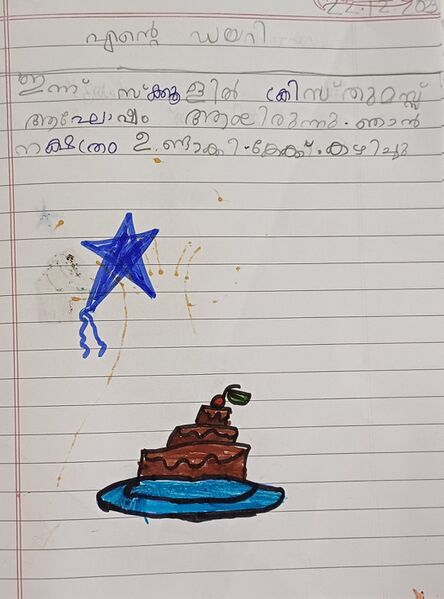 22.12.2023
എന്റെ ഡയറി
ഇന്ന് സ്ക്കൂളിൽ ക്രിസ്തുമസ്സ്
ആഘോഷം ആയിരുന്നു. ഞാൻ
നക്ഷത്രം ഉണ്ടാക്കി. കേക്ക്. കഴിച്ചു